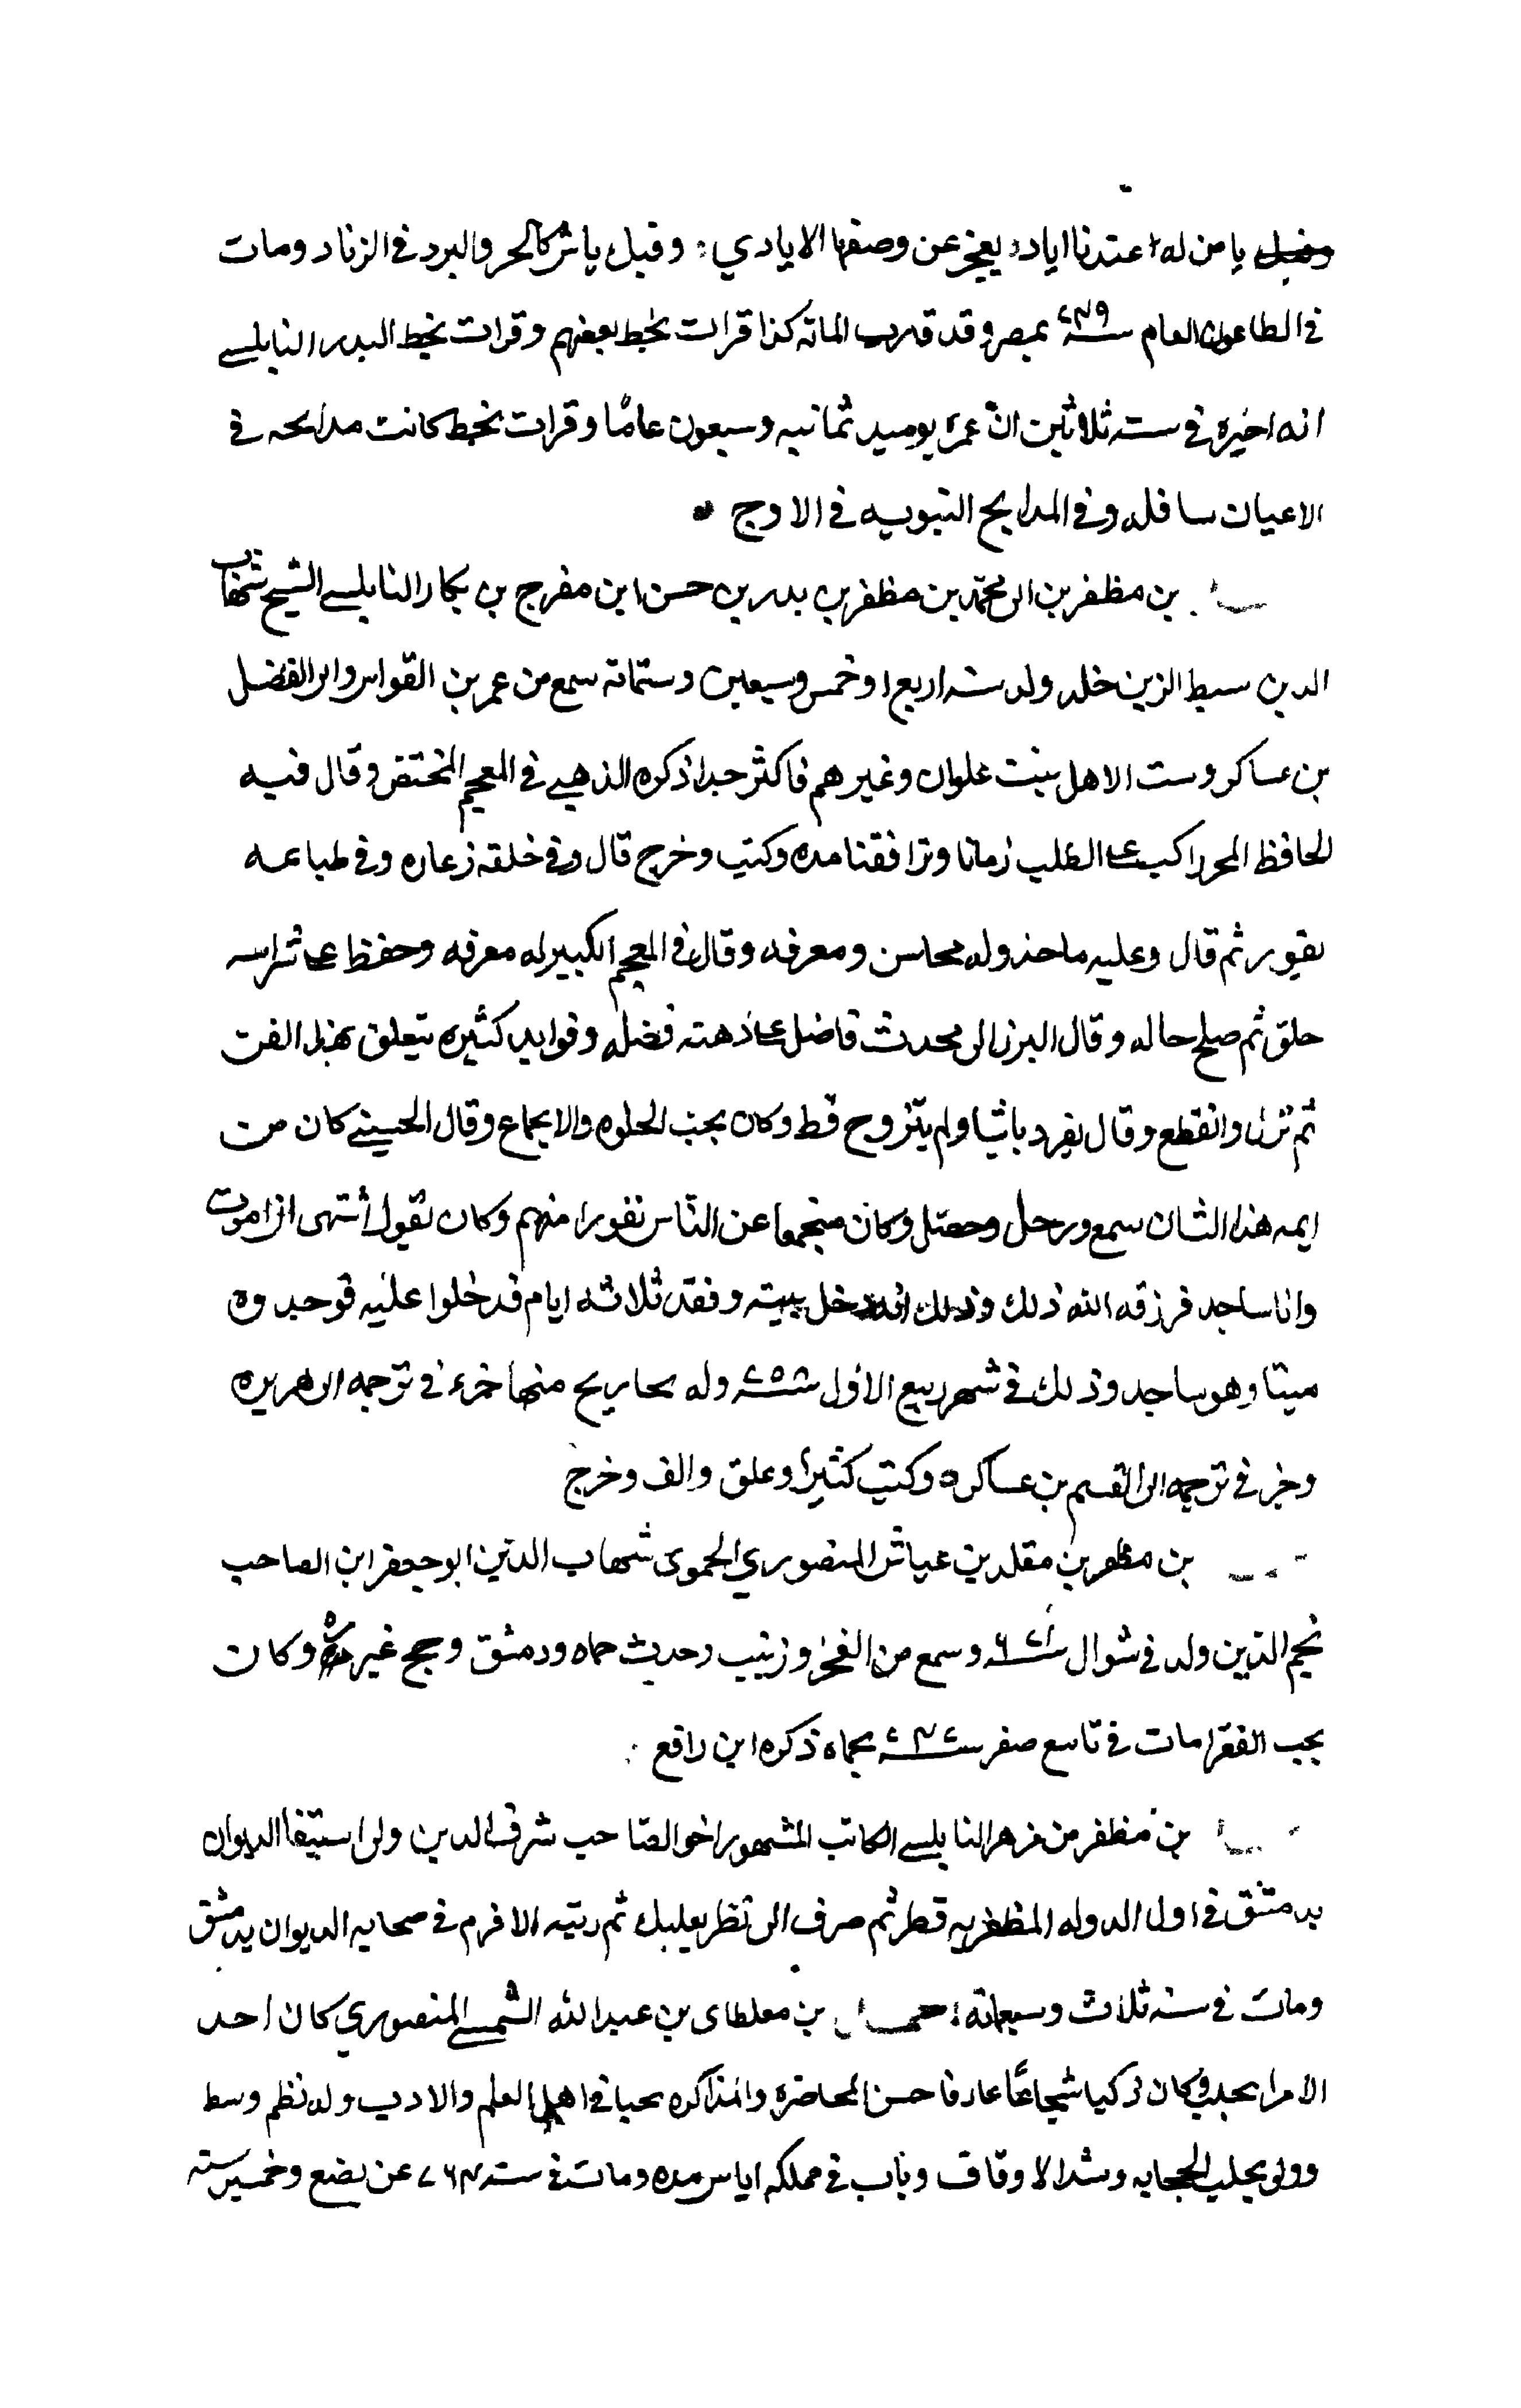 يا من له عندنا اياد يعجز عن وصفها الايادي وقيل ياش كالحر والبرد في الزناد ومات
في الطاعون العام سنة ٧٤٩ بمصر وقد قارب المائه كذا قرات بخط بعضهم وقرات بخط البدر النابلسي
انه اخبره في سنه ثلاثين ان عمره يوميد ثمانيه وسبعون عامًا وقرات بخط كانت مدايحه في
الاعيان سافله وفي المدايح النبويه في الاوج
بن مظفر بن ابي محمد بن مظفر بن بدر بن حسن ابن مفرج بن بكار النابلسي الشيخ شهاب
الدين سبط الزين خلد ولد سنه اربع او خمس وسبعين وستمائه سمع من عمر بن القواس وابي الفضل
بن عساكر وست الاهل بنت علوان وغيرهم فاكثر جدا ذكره الذهبي في المعجم المختص وقال فيه
الحافظ المحرر اكب على الطلب زمانا وترافقنا مده وكتب وخرج قال وفي خلقه زعاره وفي طباعه
نفور ثم قال وعليه ماخذ وله محاسن ومعرفه وقال في المعجم الكبير له معرفه وحفظ على شراسه
خلق ثم صلح حاله وقال البرزالي محدث فاضل على ذهنه فضله وفوايد كثيره تتعلق بهذا الفن
ثم ترك وانقطع وقال تفرد باشيا ولم يتزوج قط وكان يحب الخلوه والانجماع وقال الحسيني كان من
ايمه هذا الشان سمع ورحل وحصّل وكان منجمعا عن الناس نفورا منهم وكان يقول اشتهى ان اموت
وانا ساجد فرزقه الله ذلك وذلك انه دخل بيته وفقد ثلاثه ايام فدخلوا عليه فوجدوه
ميتا وهو ساجد وذلك في شهر ربيع الاول سنة ٧٥٨ وله تخاريج منها جزء في ترجمه ابي هريره
وجزء في ترجمه ابي القسم بن عساكر وكتب كثيرا وعلق والف وخرج
بن مظفر بن مقلد بن عياش المنصوري الحموي شهاب الدين ابو جعفر ابن الصاحب
نجم الدين ولد في شوال وسمع من الفخر وزينب وحدث حماه ودمشق وحج غير مره وكان
يحب الفقرا مات في تاسع صفر بحماه ذكره ابن رافع
بن مظفر بن مزهر النابلسي الكاتب المشهور اخو الصاحب شرف الدين ولي استيفا الديوان
بدمشق في اول الدوله المظفريه قطز ثم صرف الى نظر بعلبك ثم رتبه الافرم في صحابه الديوان بدمشق
ومات في سنه ثلاث وسبعمائه احمد بن مغلطاى بن عبد الله الشمسي المنصوري كان احد
الامرا بحلب وكان ذكيا شجاعًا عارفا حسن المحاضره والمذاكره محبا في اهل العلم والادب وله نظم وسط
وولي بحلب الحجابه وشد الاوقاف وناب في مملكه اياس مده ومات في سنه ٧٦٤ عن بضع وخمسين سنه